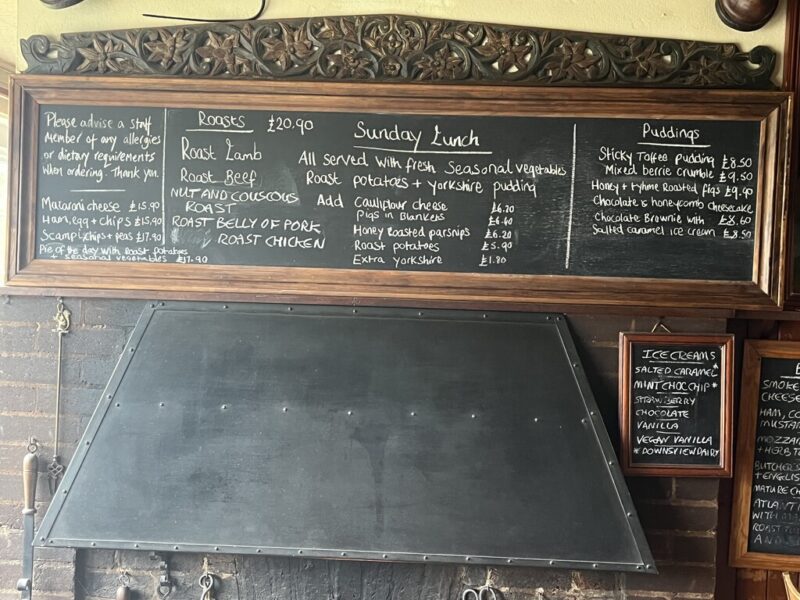 Please advise a staff
Member of any allergies
or dietary requirements
when ordering. Thank you.
Macaroni cheese £15.90
Ham, egg + chips £15.90
Scampi, chips + peas £17.90
Pie of the day with roast potatoes
+ seasonal vegetables £17.90
Roasts £20.90
Roast Lamb
Roast Beef
NUT AND COUSCOUS
ROAST
ROAST BELLY OF PORK
ROAST CHICKEN
Sunday Lunch
All served with fresh seasonal vegetables
Roast potatoes + yorkshire pudding
Add Cauliflour cheese £6.20
Pigs in Blankets
Honey Roasted parsnips £6.20
Roast potatoes £5.90
Extra Yorkshire £1.80
Puddings
Sticky Toffee pudding £8.50
Mixed berrie crumble £9.50
Honey + thyme Roasted figs £9.90
Chocolate + honeycomb cheesecake
Chocolate Brownie with £8.60
Salted caramel ice cream £8.50
ICE CREAMS
SALTED CARAMEL*
MINT CHOC CHIP*
STRAWBERRY
CHOCOLATE
VANILLA
VEGAN VANILLA
*DOWNSVIEW DAIRY
SMOKE
CHEESE
HAM, CO
MUSTA
MOZZA
+ HERB T
BUTCHERS
+ ENGLIS
MATURE CH
ATLANT
WITH MA
ROAST T
AND